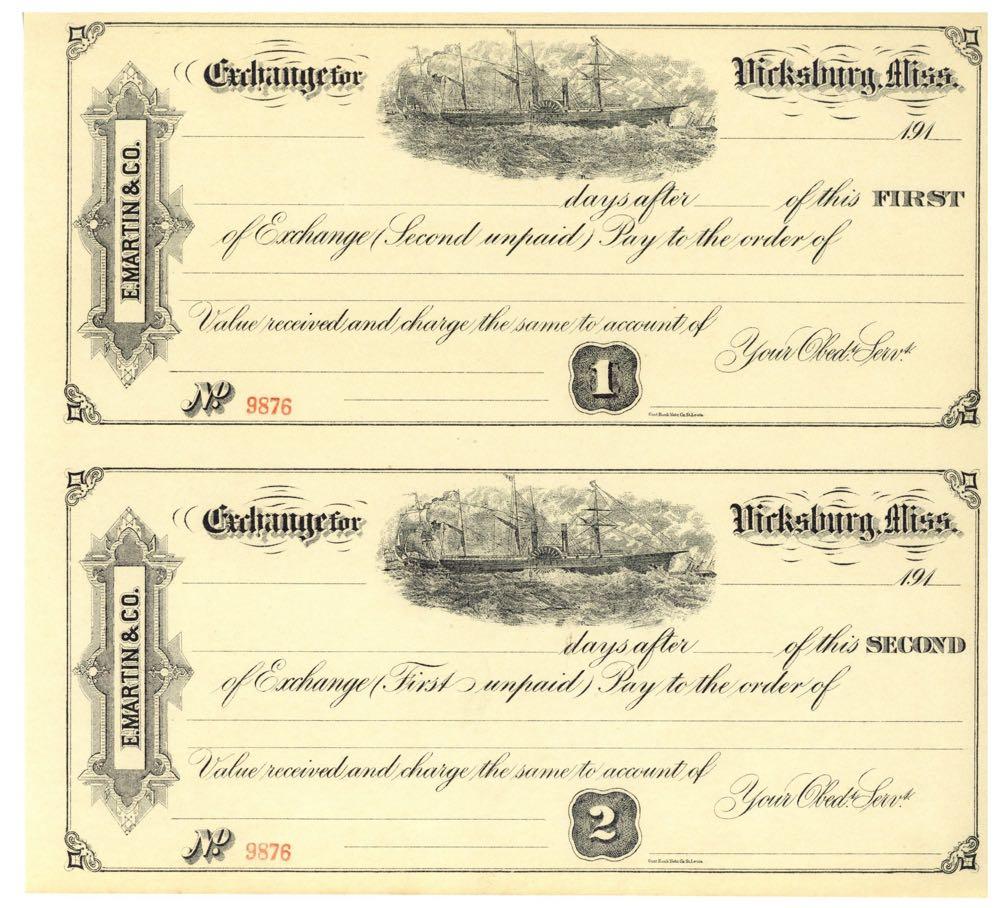 Exchange for
Vicksburg, Miss.
191
E. MARTIN & CO.
days after of this FIRST
of Exchange (Second unpaid) Pay to the order of
Value received and charge the same to account of
Your Obedt. Servt.
1
No 9876
Gast Bank Note Co. St. Louis.
Exchange for
Vicksburg, Miss.
191
E. MARTIN & CO.
days after of this SECOND
of Exchange (First unpaid) Pay to the order of
Value received and charge the same to account of
Your Obedt. Servt.
2
No 9876
Gast Bank Note Co. St. Louis.